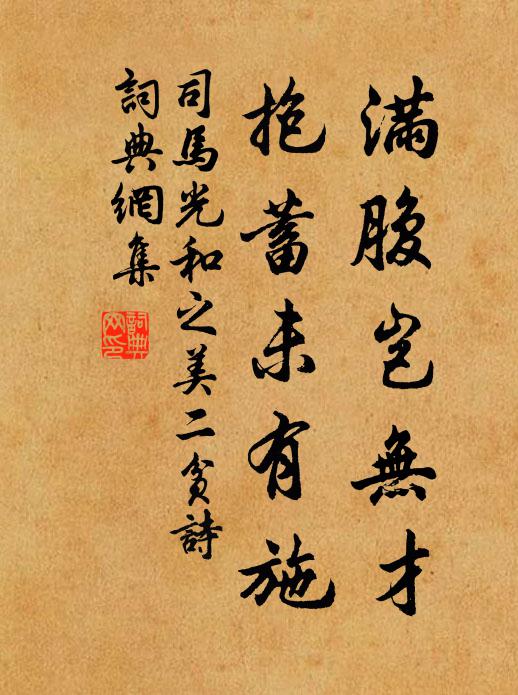 滿腹豈無才
抱蓄未有施
司馬光和之美二貧詩
詞典網集
詞典網印